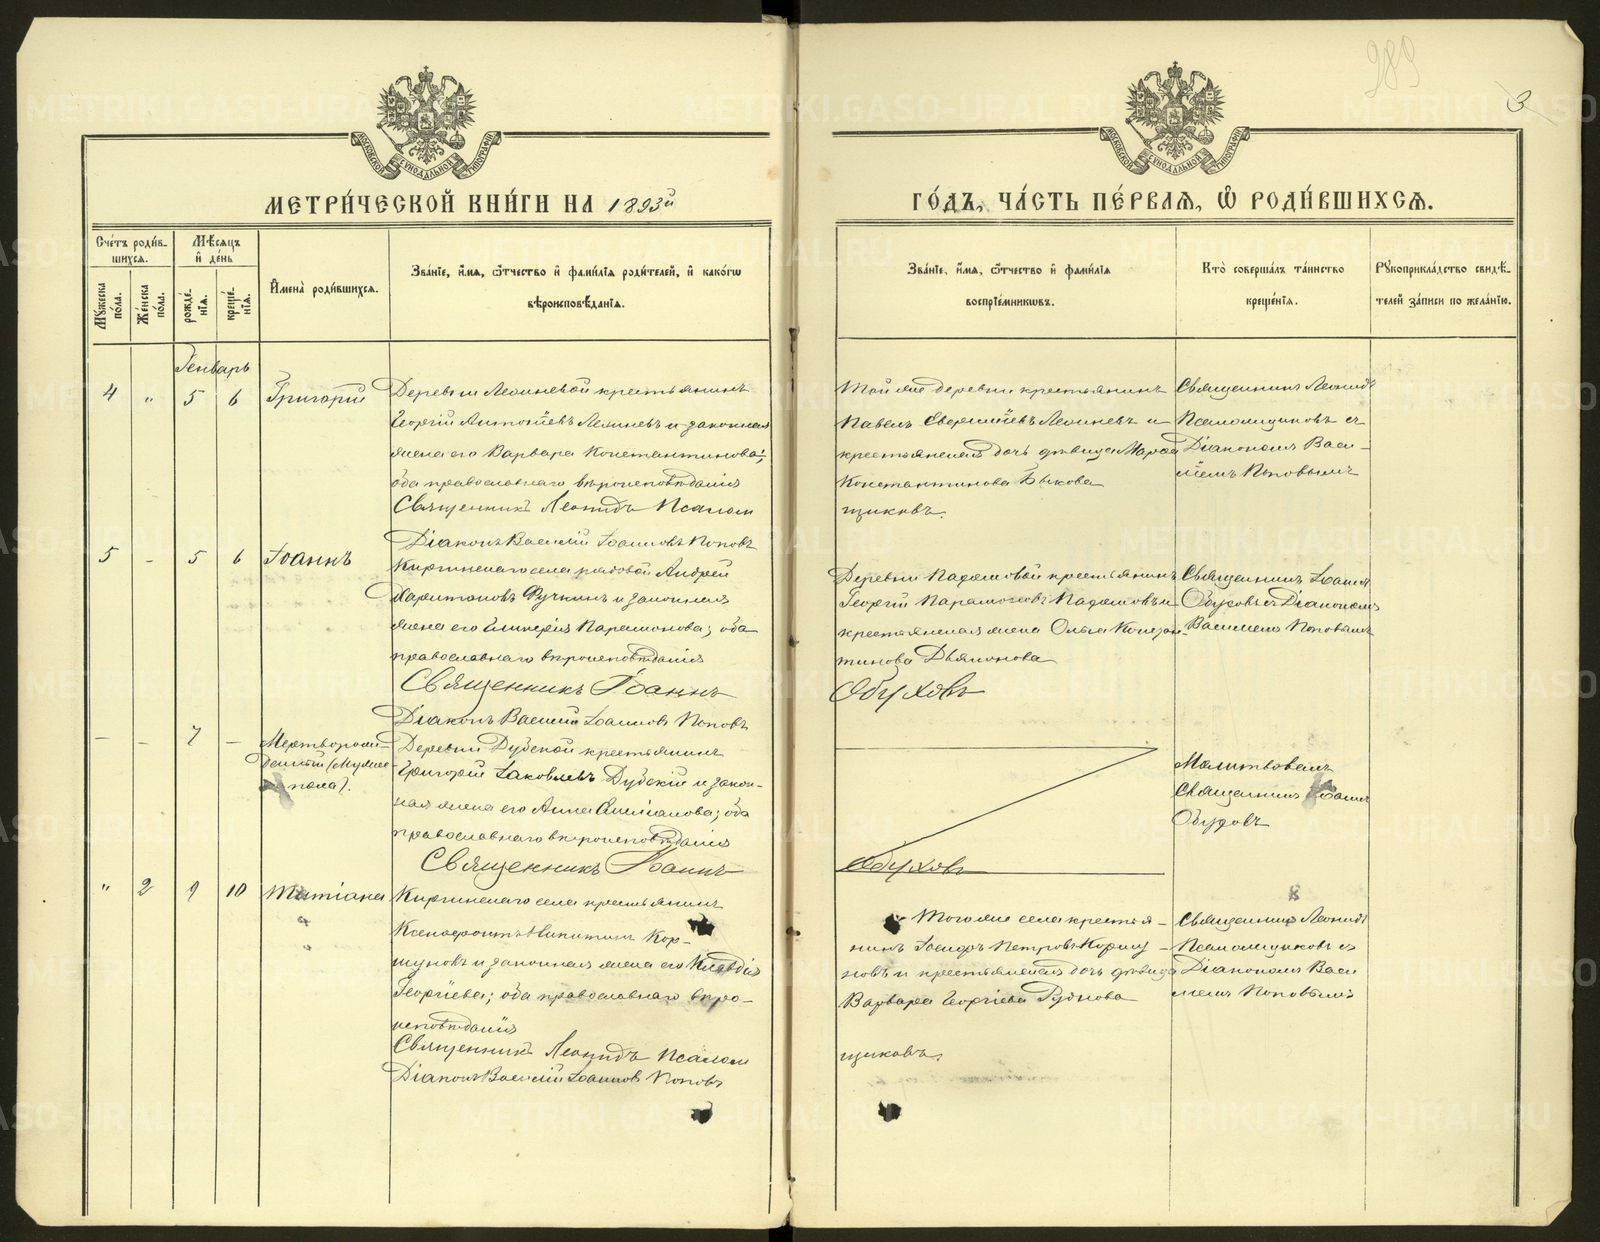 289
3
МОСКОВСКОЙ СѴНОДАЛЬНОЙ ТИПОГРАФІИ
МОСКОВСКОЙ СѴНОДАЛЬНОЙ ТИПОГРАФІИ
МЕТРИ́ЧЕСКОЙ КНИ́ГИ НА 1893й
ГО́ДЪ, ЧА́СТЬ ПЕ́РВАѦ, Ѡ РОДИ́ВШИХСѦ.
Сче́тъ роди́в-
шихсѧ.
Мꙋ́жеска по́ла.
Же́нска по́ла.
Мѣ́сѧцъ
и҆ де́нь
рожде́-
нїѧ.
креще́-
нїѧ.
И҆мена̀ роди́вшихсѧ.
Зва́нїе, и҆́мѧ, ѻ҆́тчество и҆ фами́лїѧ роди́телей, и҆ како́гѡ
вѣроисповѣ́данїѧ.
Зва́нїе, и҆́мѧ, ѻ҆́тчество и҆ фами́лїѧ
воспрїе́мникѡвъ.
Кто̀ соверша́лъ та́инство
креще́нїѧ.
Рꙋкоприкла́дство свидѣ́-
телей за́писи по жела́нїю.
Генварь
4 " 5 6 Григорій
Деревни крестьянинъ
Георгій и законная
жена его Варвара Константинова;
оба православнаго вѣроисповѣданія
Священникъ Леонидъ Псалом
Діаконъ Василій Іоанновъ Поповъ
Той же деревни крестьянинъ
Павелъ и
крестьянская дочь дѣвица
Константинова Быкова
щиковъ.
Священникъ Леонидъ
Псаломщиковъ съ
Діакономъ Васи-
ліемъ Поповымъ
5 - 5 6 Іоаннъ
Киргинскаго села рядовой Андрей
Харитоновъ Ручкинъ и законная
жена его Парамонова; оба
православнаго вѣроисповѣданія
Священникъ Іоаннъ
Діаконъ Василій Іоанновъ Поповъ
Деревни крестьянинъ
Георгій
крестьянская жена Ольга Констан-
тинова
Обуховъ
Священникъ Іоаннъ
Обуховъ съ Діакономъ
Василіемъ Поповымъ
- - 7 - Мертворож-
денный (Мужес.
пола).
Деревни Дубской крестьянинъ
Григорій Іаковлевъ Дубскій и закон-
ная жена его Анна; оба
православнаго вѣроисповѣданія
Священникъ Іоаннъ
Обуховъ
Молитвовалъ
Священникъ Іоаннъ
Обуховъ
" 2 9 10 Татіана
Киргинскаго села крестьянинъ
Ксенофонтъ Никитинъ Кор-
шуновъ и законная жена его Клавдія
Георгіева; оба православнаго вѣро-
исповѣданія
Священникъ Леонидъ Псалом
Діаконъ Василій Іоанновъ Поповъ
Того же села крестья-
нинъ Петровъ Коршу-
новъ и крестьянская дочь дѣвица
Варвара Георгіева
щиковъ.
Священникъ Леонидъ
Псаломщиковъ съ
Діакономъ Васи
ліемъ Поповымъ
METRIKI.GASO-URAL.RU